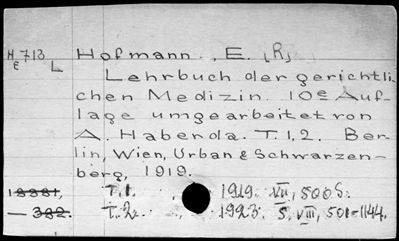 H 713 Hofmann, E. (R)
E L
Lehrbuch der gerichtli-
chen Medizin. 10e Auf-
lage umgearbeitet von
A. Haberda. T. 1, 2. Ber-
lin, Wien, Urban & Schwarzen-
berg, 1919.
T. 1. 1919. VII, 500 S.
— 382. T. 2. 1923. S. VIII, 501-1144.